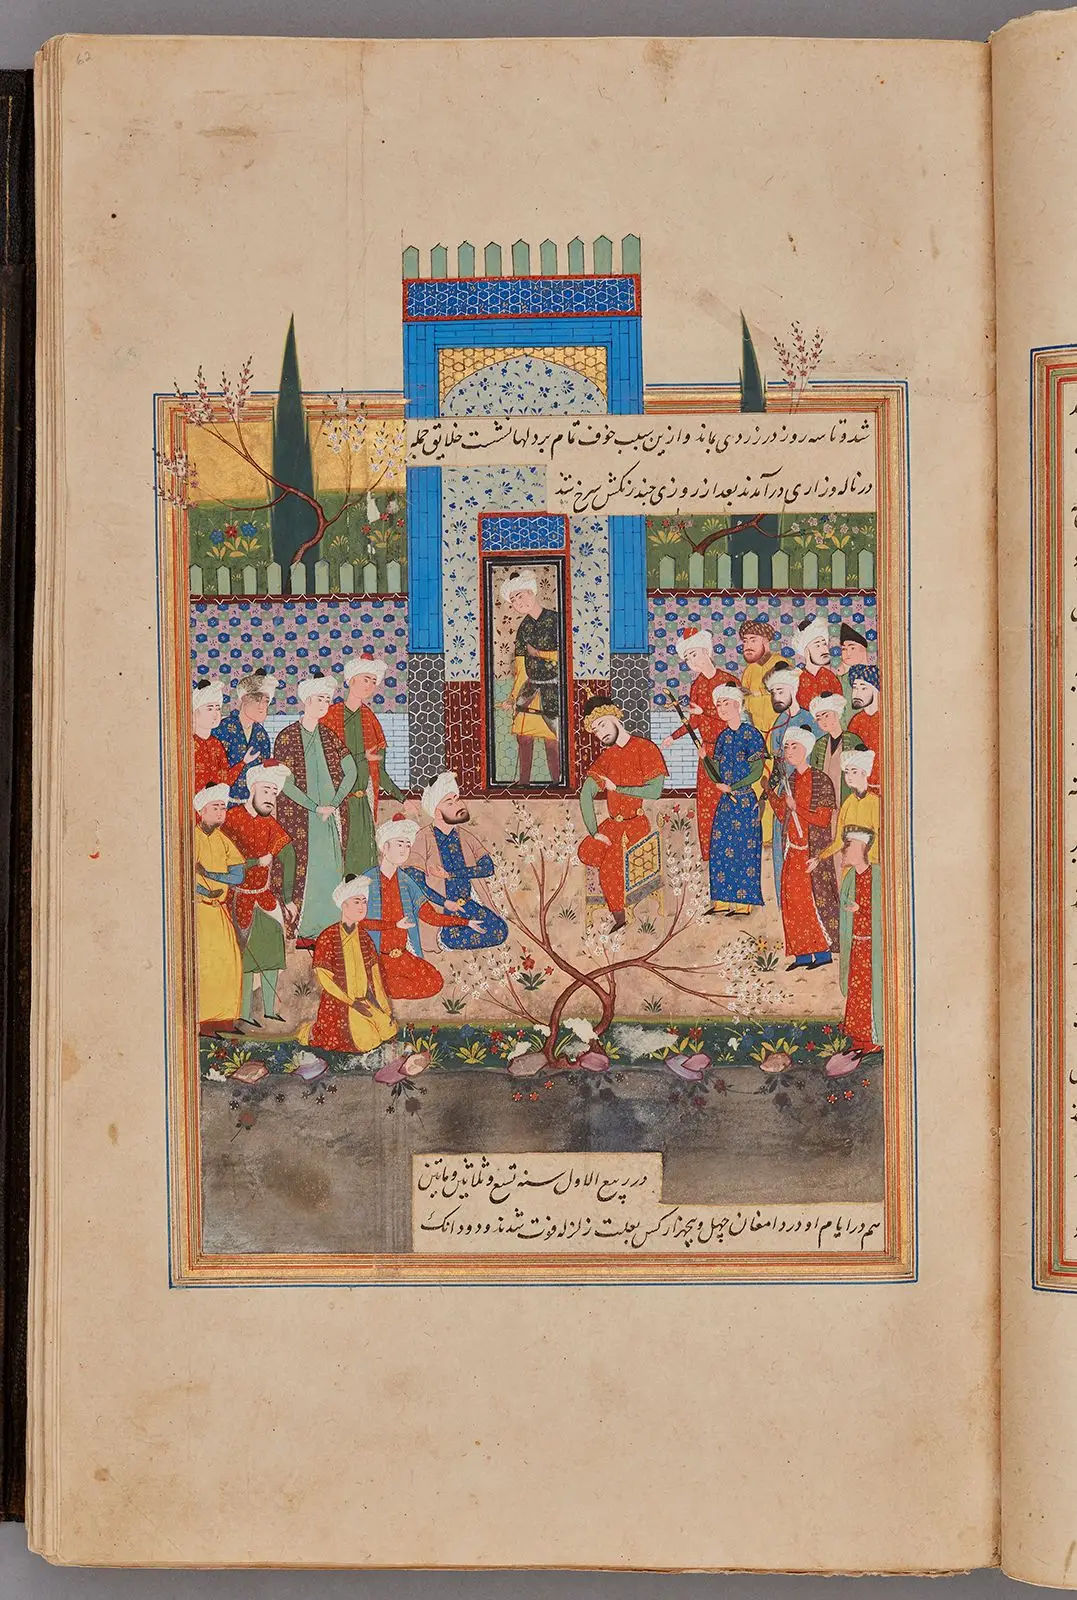 62
شد و تا سه روز در زردی بماند و ازین سبب خوف تمام بر دلها نشست خلایق جمله
در ناله و زاری در آمدند بعد از روزی چند رنکش سرخ شد
در ربیع الاول سنه تسع و ثلاثین و ماتین
هم در ایام او در دامغان چهل و پنجهزار کس بعلت زلزله فوت شدند و دودانک